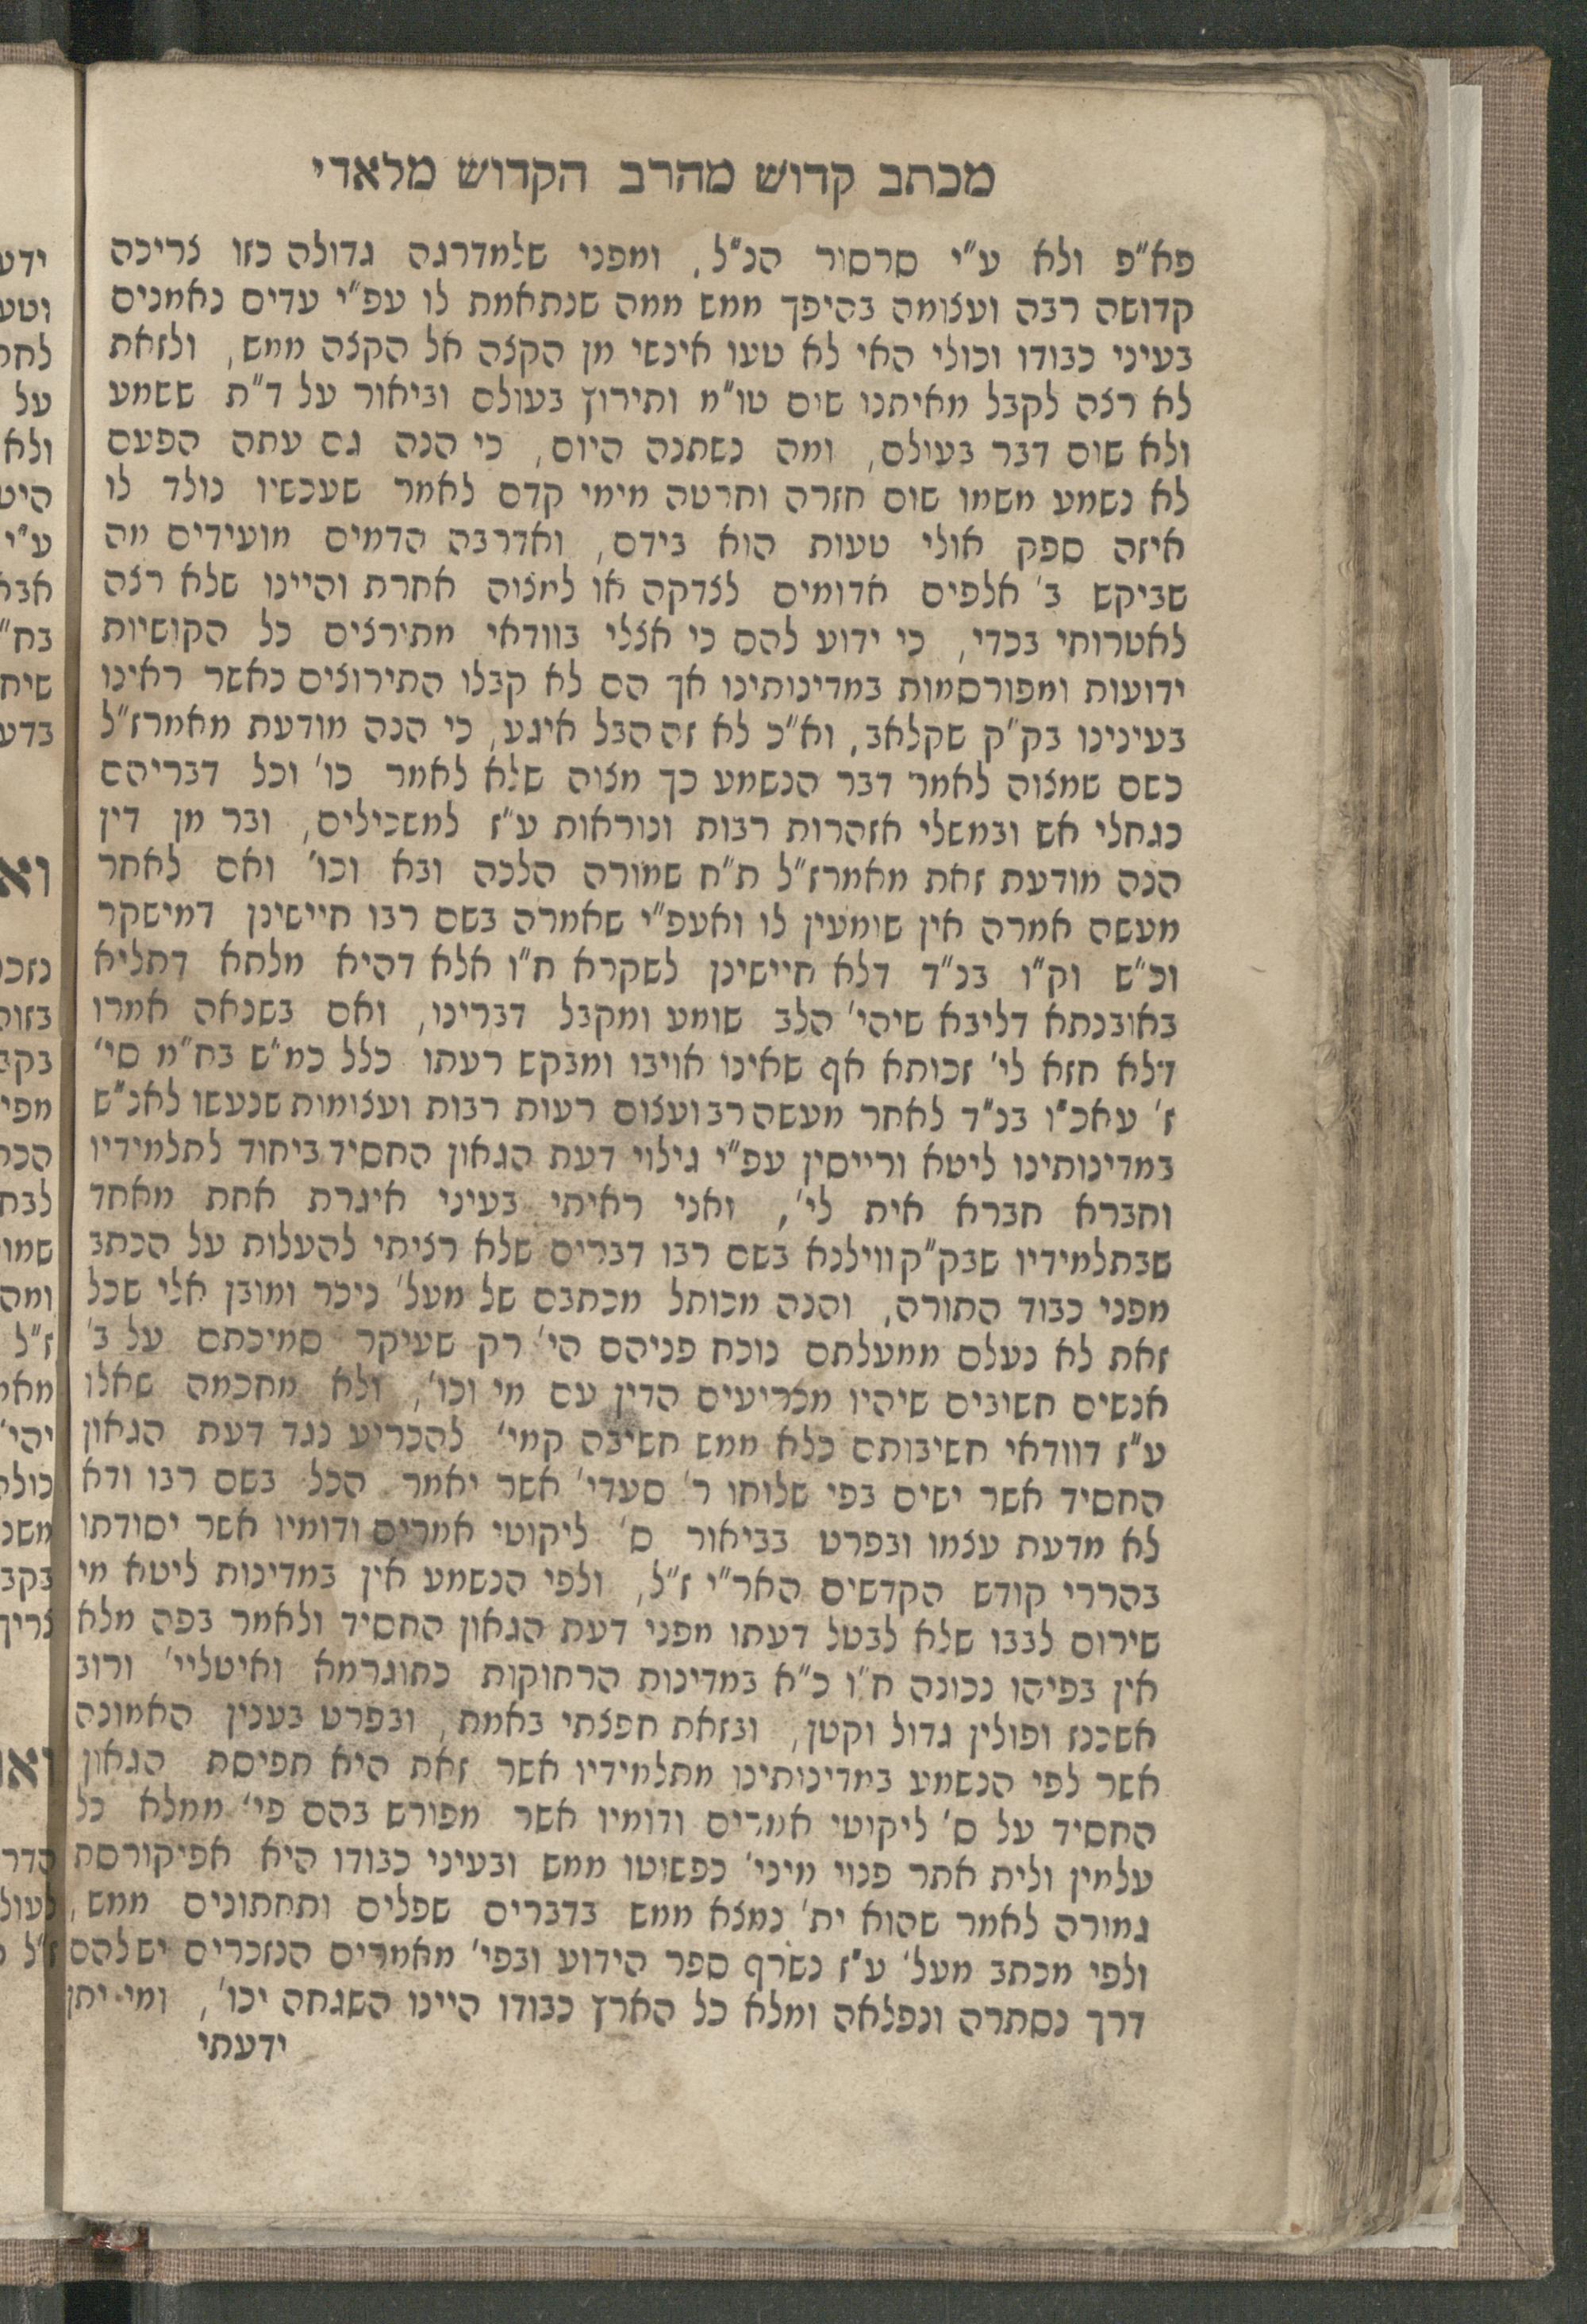 מכתב קדוש מהרב הקדוש מלאדי
פא״פ ולא ע״י סרסור הנ״ל, ומפני שלמדרגה גדולה כזו צריכה
קדושה רבה ועצומה בהיפך ממש ממה שנתאמת לו עפ״י עדים נאמנים
בעיני כבודו וכולי האי לא טעו אינשי מן הקצה אל הקצה ממש, ולזאת
לא רצה לקבל מאיתנו שום טו״מ ותירוץ בעולם וביאור על ד״ת ששמע
ולא שום דבר בעולם, ומה נשתנה היום, כי הנה גם עתה הפעם
לא נשמע משמו שום חזרה וחרטה מימי קדם לאמר שעכשיו נולד לו
איזה ספק אולי טעות הוא בידם, ואדרבה הדמים מועידים מה
שביקש ב׳ אלפים אדומים לצדקה או למצוה אחרת והיינו שלא רצה
לאטרוחי בכדי, כי ידוע להם כי אצלי בוודאי מתירצים כל הקושיות
ידועות ומפורסמות במדינותינו אך הם לא קבלו התירוצים כאשר ראינו
בעינינו בק״ק שקלאב, וא״כ לא זה הבל איגע, כי הנה מודעת מאמרז״ל
כשם שמצוה לאמר דבר הנשמע כך מצוה שלא לאמר כו׳ וכל דבריהם
כגחלי אש ובמשלי אזהרות רבות ונוראות ע״ז למשכילים, ובר מן דין
הנה מודעת זאת מאמרז״ל ת״ח שמורה הלכה ובא וכו׳ ואם לאחר
מעשה אמרה אין שומעין לו ואעפ״י שאמרה בשם רבו חיישינן דמישקר
וכ״ש וק״ו בנ״ד דלא חיישינן לשקרא ח״ו אלא דהיא מלתא דתליא
באובנתא דליבא שיהי׳ הלב שומע ומקבל דברינו, ואם בשנאה אמרו
דלא חזא לי׳ זכותא אף שאינו אויבו ומבקש רעתו כלל כמ״ש בח״מ סי׳
ז׳ עאכ״ו בנ״ד לאחר מעשה רב ועצום רעות רבות ועצומות שנעשו לאנ״ש
במדינותינו ליטא ורייסין עפ״י גילוי דעת הגאון החסיד ביחוד לתלמידיו
וחברא חברא אית לי׳, ואני ראיתי בעיני איגרת אחת מאחד
שבתלמידיו שבק״ק ווילנא בשם רבו דברים שלא רציתי להעלות על הכתב
מפני כבוד התורה, והנה מכותל מכתבם של מעל׳ ניכר ומובן אלי שכל
זאת לא נעלם ממעלתם נוכח פניהם הי׳ רק שעיקר סמיכתם על ב׳
אנשים חשובים שיהיו מכריעים הדין עם מי וכו׳, ולא מחכמה שאלו
ע״ז דוודאי חשיבותם כלא ממש חשיבה קמי׳ להכריע נגד דעת הגאון
החסיד אשר ישים בפי שלוחו ר׳ סעדי׳ אשר יאמר הכל בשם רבו ודא
לא מדעת עצמו ובפרט בביאור ס׳ ליקוטי אמרים ודומיו אשר יסודתו
בהררי קודש הקדשים האר״י ז״ל, ולפי הנשמע אין במדינות ליטא מי
שירום לבבו שלא לבטל דעתו מפני דעת הגאון החסיד ולאמר בפה מלא
אין בפיהו נכונה ח״ו כ״א במדינות הרחוקות כתוגרמא ואיטליי׳ ורוב
אשכנז ופולין גדול וקטן, ובזאת חפצתי באמת, ובפרט בענין האמונה
אשר לפי הנשמע במדינותינו מתלמידיו אשר זאת היא תפיסת הגאון
החסיד על ס׳ ליקוטי אמרים ודומיו אשר מפורש בהם פי׳ ממלא כל
עלמין ולית אתר פנוי מיני׳ כפשוטו ממש ובעיני כבודו היא אפיקורסת
גמורה לאמר שהוא ית׳ נמצא ממש בדברים שפלים ותחתונים ממש,
ולפי מכתב מעל׳ ע״ז נשרף ספר הידוע ובפי׳ מאמרים הנזכרים יש להם
דרך נסתרה ונפלאה ומלא כל הארץ כבודו היינו השגחה יכו׳, ומי יתן
ידעתי